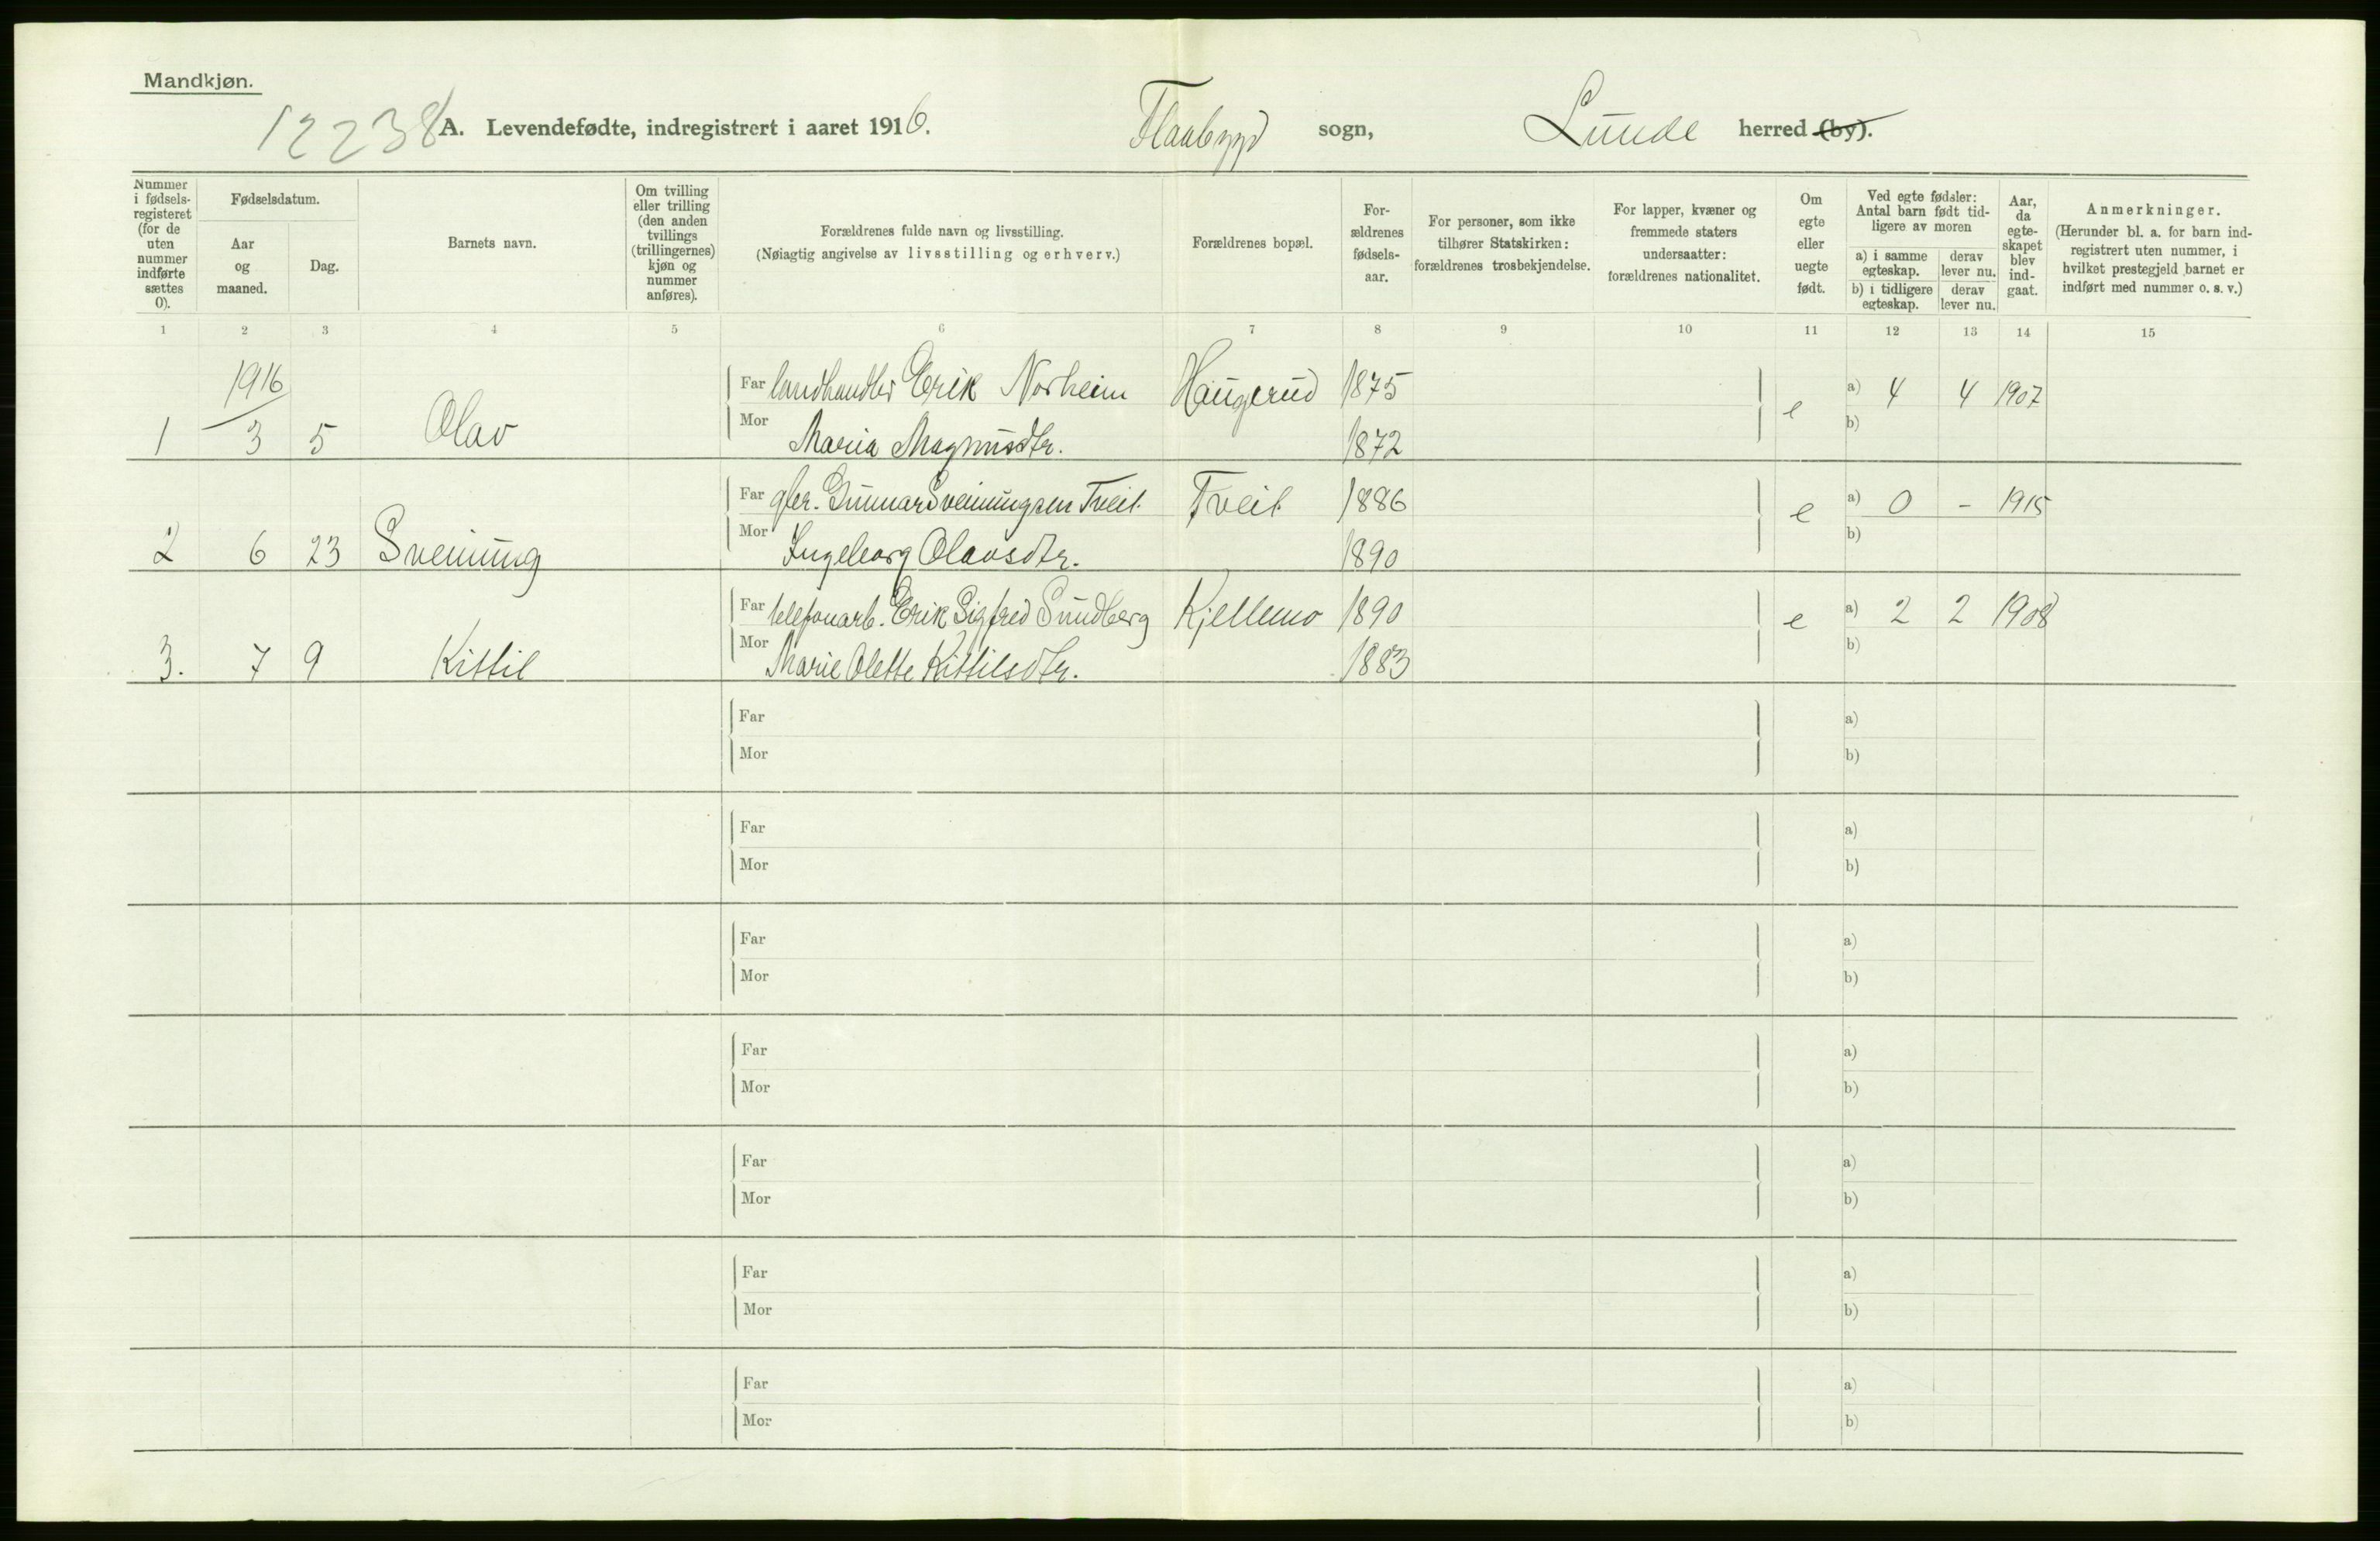 Mandkjøn.
12238 A. Levendefødte, indregistrert i aaret 1916. Flaabygd sogn, Lunde herred (by).
Nummer i fødselsregisteret (for de uten nummer indførte sættes 0).
Fødselsdatum.
Aar og maaned.
Dag.
Barnets navn.
Om tvilling eller trilling (den anden tvillings (trillingernes) kjøn og nummer anføres).
Forældrenes fulde navn og livsstilling.
(Nøiagtig angivelse av livsstilling og erhverv.)
Forældrenes bopæl.
Forældrenes fødselsaar.
For personer, som ikke tilhører Statskirken: forældrenes trosbekjendelse.
For lapper, kvæner og fremmede staters undersaatter: forældrenes nationalitet.
Om egte eller uegte født.
Ved egte fødsler: Antal barn født tidligere av moren
a) i samme egteskap.
derav lever nu.
b) i tidligere egteskap.
derav lever nu.
Aar, da egteskapet blev indgaat.
Anmerkninger.
(Herunder bl. a. for barn indregistrert uten nummer, i hvilket prestegjeld barnet er indført med nummer o. s. v.)
1 2 3 4 5 6 7 8 9 10 11 12 13 14 15
1916
Far landhandler Erik Norheim Haugerud 1875 e a) 4 4 1907
1 3 5 Olav Mor Maria Magnusdtr. 1872 b)
Far gbr. Gunnar Sveinungsen Tveit Tveit 1886 e a) 0 - 1915
2 6 23 Sveinung Mor Ingeborg Olavsdtr. 1890 b)
Far telefonarb. Erik Sigfred Sundberg Kjellemo 1890 e a) 2 2 1908
3. 7 9 Kittil Mor Marie Olette Kittilsdtr. 1883 b)
Far a)
Mor b)
Far a)
Mor b)
Far a)
Mor b)
Far a)
Mor b)
Far a)
Mor b)
Far a)
Mor b)
Far a)
Mor b)